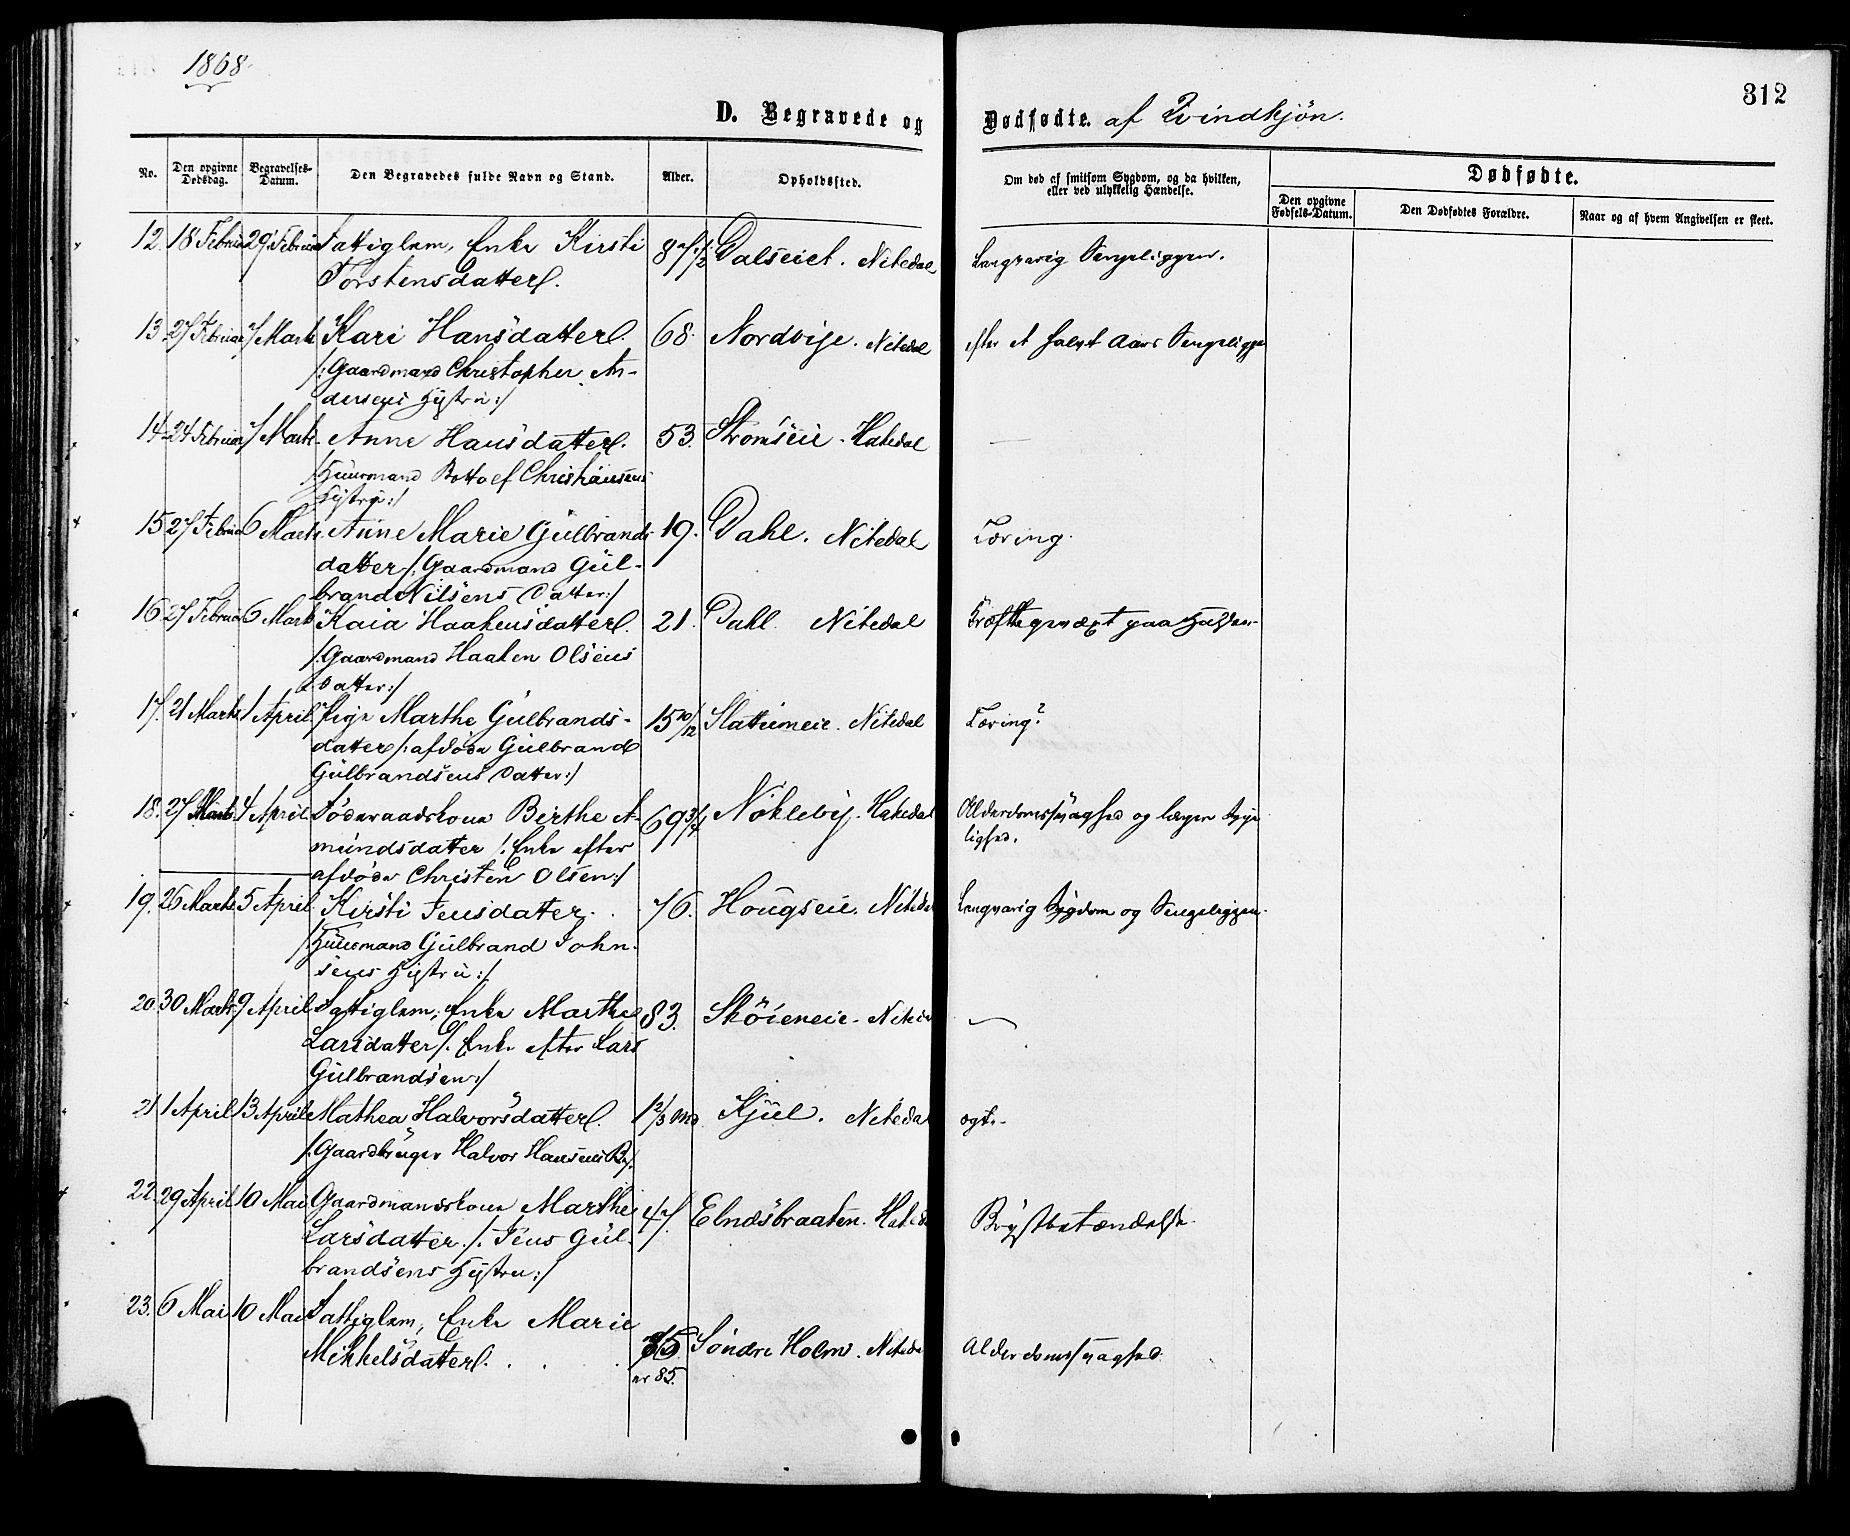 1868
312
D. Begravede og Dødfødte. af Qvindkjøn.
No.
Den opgivne Dødsdag.
Begravelses-Datum.
Den Begravedes fulde Navn og Stand.
Alder.
Opholdssted.
Om død af smitsom Sygdom, og da hvilken,
eller ved ulykkelig Hændelse.
Dødfødte.
Den opgivne Fødsels-Datum.
Den Dødfødtes Forældre.
Naar og af hvem Angivelsen er skeet.
12. 18 Februar 29 Februar Fattiglem, Enke Kirsti 87 1/2 Dalseiet. Nitedal Langvarig Sengeliggen.
Torstensdatter.
13. 27 Februar 7 Marts Kari Hansdatter. 68. Nordbye. Nitedal efter et halvt Aars Sengeligge
/: Gaardmand Christopher An-
dersens Hustru :/
14. 24 Februar 7 Marts Anne Hansdatter. 53. Strømseie. Hakedal —
/: Huusmand Christiansens
Hustru :/
15. 27 Februar 6 Marts Anne Marie Gulbrands- 19. Dahl. Nitedal Tæring.
datter /: Gaardmand Gul-
brand Nilsens Datter :/
16. 27 Februar 6 Marts Kaia Haakensdatter. 21. Dahl Nitedal Kræftegevæxt paa Halsen
/: Gaardmand Haaken Olsens
Datter :/
17. 21 Marts 1 April Pige Marthe Gulbrands- 15 10/12 Slattumeie. Nitedal Tæring?
datter /: afdøde Gulbrand
Gulbrandsens Datter :/
18. 27 Marts 4 April Føderaadskone Birthe A- 69 3/4 Nøkleby. Hakedal Alderdomssvaghed og længere Syge-
mundsdatter /: Enke efter lighed.
afdøde Christen Olsen :/
19. 26 Marts 5 April Kirsti Jensdatter. 76. Hougseie. Nitedal Langvarig Sygdom og Sengeliggen.
/: Huusmand Gulbrand John-
sens Hustru :/
20. 30 Marts 9 April Fattiglem, Enke Marthe 83. Skøieneie. Nitedal —
Larsdatter /: Enke efter Lars
Gulbrandsen :/
21. 1 April 13 April Mathea Halvorsdatter. 1 2/3 Md. Kjul. Nitedal
/: Gaardbruger Halvor Hansens B :/
22. 29 April 10 Mai Gaardmandskone Marthe 47. Elnæsbraaten. Hakedal Brystbetændelse.
Larsdatter. /: Jens Gul-
brandsens Hustru :/
23. 6 Mai 10 Mai Fattiglem, Enke Marie
Mikkelsdatter. 75 Søndre Holm. Nitedal Alderdomssvaghed.
er 85.